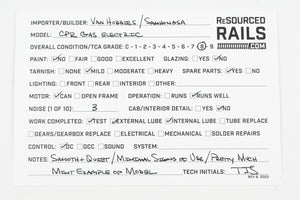 IMPORTER/BUILDER: VAN HOBBIES/SAMHONGSA
RESOURCED RAILS .COM
MODEL: CPR GAS ELECTRIC
OVERALL CONDITION/TCA GRADE: C - 1 - 2 - 3 - 4 - 5 - 6 - 7 - 8 - 9
PAINT: NO FAIR GOOD EXCELLENT GLAZING: YES NO
TARNISH: NONE MILD MODERATE HEAVY SPARE PARTS: YES NO
LIGHTING: FRONT REAR INTERIOR
MOTOR: CAN OPEN FRAME OPERATION: RUNS RUNS WELL
NOISE (1 OF 10): 3 CAB/INTERIOR DETAIL: YES NO
WORK COMPLETED: TEST EXTERNAL LUBE INTERNAL LUBE TUBE REPLACE
GEARS/GEARBOX REPLACE ELECTRICAL MECHANICAL SOLDER REPAIRS
CONTROL: DC DCC SOUND SYSTEM:
NOTES: SMOOTH + QUIET / MINIMAL SIGNS OF USE / PRETTY MUCH
MINT EXAMPLE OF MODEL TECH INITIALS: TJS